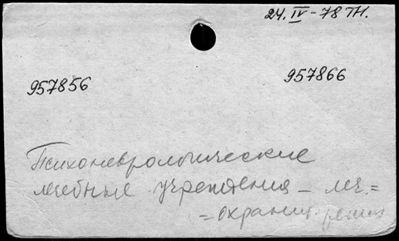 24.IV-78 тн.
957856 957866
Психоневрологические
лечебные учреждения – леч.=
=охранит. режим